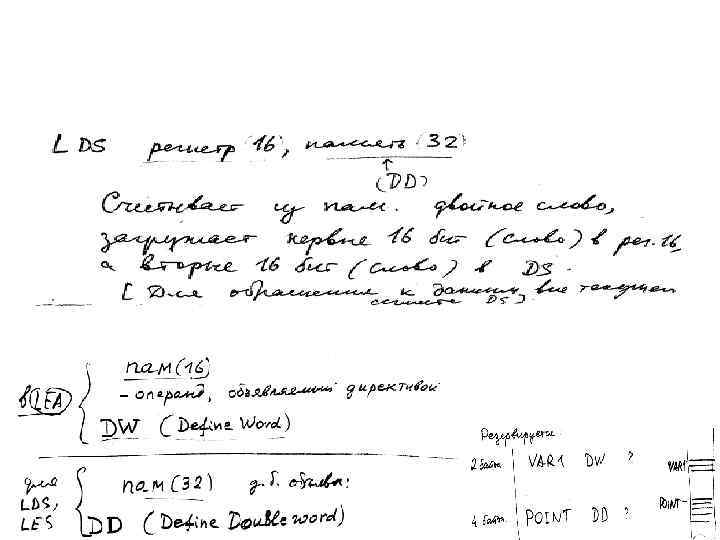 LDS регистр (16), память (32)
(DD)
Считывает из пам. двойное слово,
загружает первые 16 бит (слово) в рег.16,
а вторые 16 бит (слово) в DS.
[Для обращения к данным вне текущего
сегмента DS]
пам(16)
в LEA
- операнд, объявляемый директивой
DW (Define Word)
для
LDS,
LES
пам(32) д.б. объявл:
DD (Define Doubleword)
Резервируется:
2 байта VAR1 DW ?
4 байта POINT DD ?
VAR1
POINT